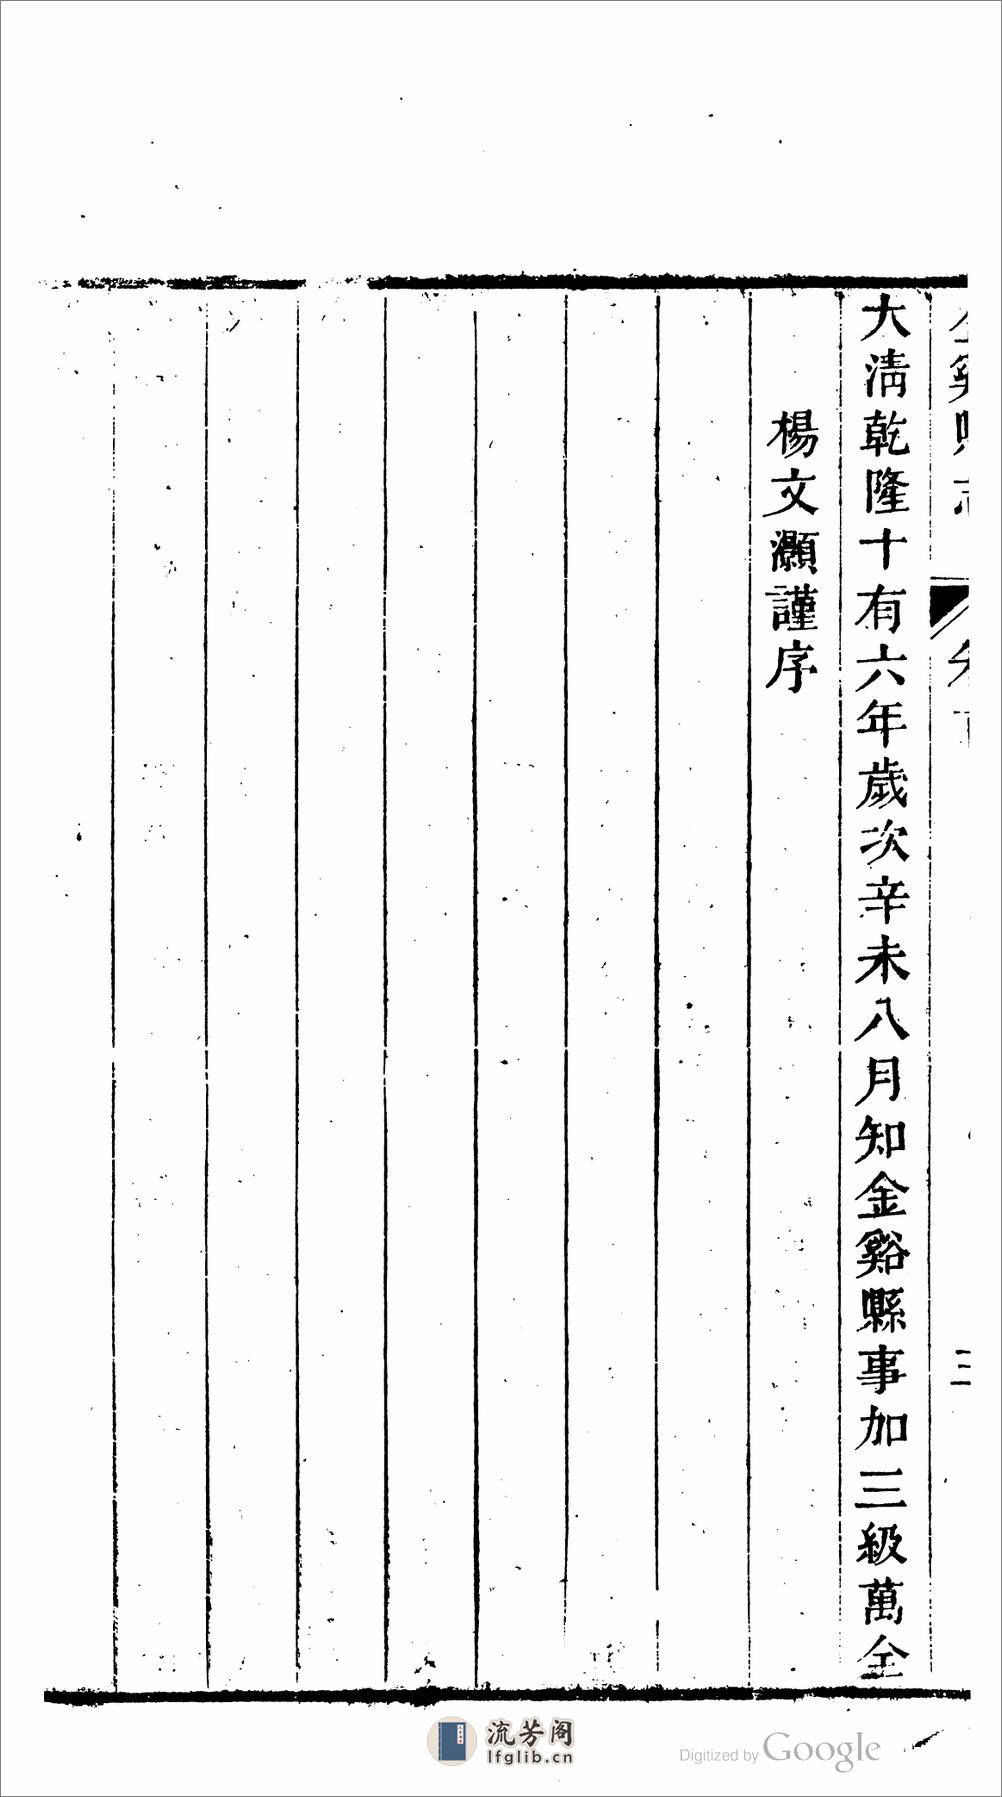 大清乾隆十有六年歲次辛未八月知金谿縣事加三級萬全
楊文灝謹序
三
流芳阁
lfglib.cn
Digitized by Google